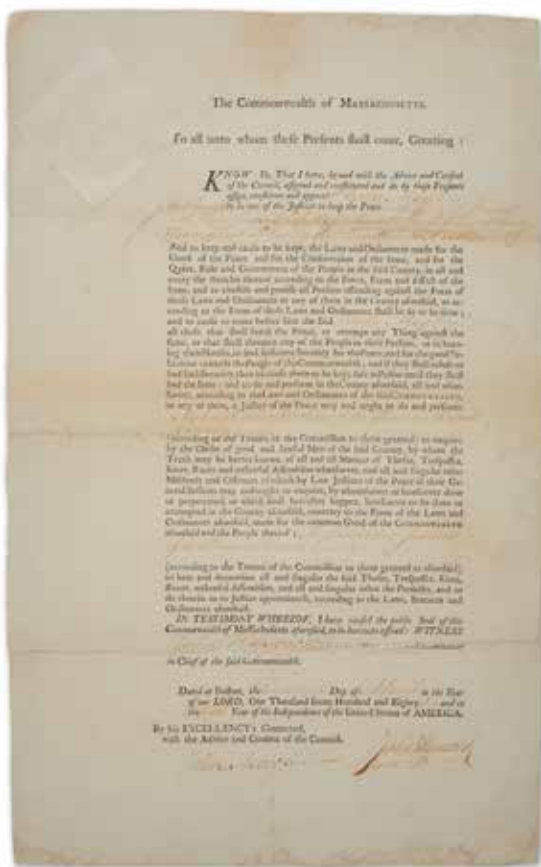 The Commonwealth of MASSACHUSETTS.
To all unto whom these Presents shall come, Greeting:
KNOW Ye, That I have, by and with the Advice and Consent
of the Council, assigned and constituted and do by these Presents
assign, constitute and appoint
to be one of the Justices to keep the Peace
And to keep and cause to be kept, the Laws and Ordinances made for the
Good of the Peace and for the Conservation of the same, and for the
Quiet, Rule and Government of the People in the said County, in all and
every the Articles thereof according to the Force, Form and Effect of the
same, and to chastise and punish all Persons offending against the Form of
those Laws and Ordinances or any of them in the County aforesaid, as ac-
cording to the Form of those Laws and Ordinances shall be fit to be done;
and to cause to come before him the said
all those that shall break the Peace, or attempt any Thing against the
same, or that shall threaten any of the People in their Persons, or in burn-
ing their Houses, to find sufficient Security for the Peace, and for the good Be-
haviour towards the People of this Commonwealth; and if they shall refuse to
find such Security then to cause them to be kept safe in Prison until they shall
find the same; and to do and perform in the County aforesaid, all and what-
soever, according to the Laws and Ordinances of the said COMMONWEALTH,
or any of them, a Justice of the Peace may and ought to do and perform:
(according to the Tenour of the Commission to them granted) to enquire
by the Oaths of good and lawful Men of the said County, by whom the
Truth may be better known, of all and all Manner of Thefts, Trespasses,
Riots, Routs and unlawful Assemblies whatsoever, and all and singular other
Misdeeds and Offences of which by Law Justices of the Peace in their Ge-
neral Sessions may and ought to enquire, by whomsoever or howsoever done
or perpetrated, or which shall hereafter happen, howsoever to be done or
attempted in the County aforesaid, contrary to the Form of the Laws and
Ordinances aforesaid, made for the common Good of the COMMONWEALTH
aforesaid and the People thereof;
(according to the Tenour of the Commission to them granted as aforesaid)
to hear and determine all and singular the said Thefts, Trespasses, Riots,
Routs, unlawful Assemblies, and all and singular other the Premises, and to
do therein as to Justice appertaineth, according to the Laws, Statutes and
Ordinances aforesaid.
IN TESTIMONY WHEREOF, I have caused the public Seal of this
Commonwealth of Massachusetts aforesaid, to be hereunto affixed: WITNESS
in Chief of the said Commonwealth.
Dated at Boston, the Day of in the Year
of our LORD, One Thousand Seven Hundred and Eighty and in
the Year of the Independence of the United States of AMERICA.
By his EXCELLENCY's Command,
with the Advice and Consent of the Council.